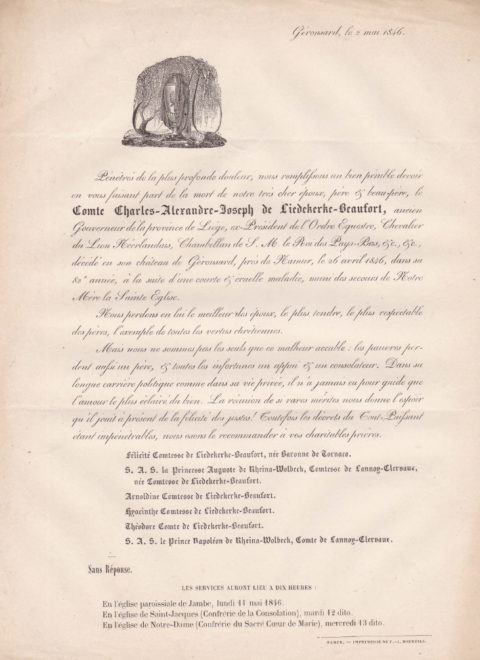 Géronsard, le 2 mai 1846.
Pénétrés de la plus profonde douleur, nous remplissons un bien pénible devoir
en vous faisant part de la mort de notre très cher époux, père & beau-père, le
Comte Charles-Alexandre-Joseph de Liedekerke-Beaufort, ancien
Gouverneur de la province de Liége, ex-Président de l'Ordre Equestre, Chevalier
du Lion Néerlandais, Chambellan de S. M. le Roi des Pays-Bas, &c., &c.,
décédé en son château de Géronsard, près de Namur, le 26 avril 1846, dans sa
82e année, à la suite d'une courte & cruelle maladie, muni des secours de Notre
Mère la Sainte Eglise.
Nous perdons en lui le meilleur des époux, le plus tendre, le plus respectable
des pères, l'exemple de toutes les vertus chrétiennes.
Mais nous ne sommes pas les seuls que ce malheur accable : les pauvres per-
dent aussi un père, & toutes les infortunes un appui & un consolateur. Dans sa
longue carrière politique comme dans sa vie privée, il n'a jamais eu pour guide que
l'amour le plus éclairé du bien. La réunion de si rares mérites nous donne l'espoir
qu'il jouit à présent de la félicité des justes! Toutefois les décrets du Tout-Puissant
étant impénétrables, nous osons le recommander à vos charitables prières.
Félicité Comtesse de Liedekerke-Beaufort, née Baronne de Tornaco.
S. A. S. la Princesse Auguste de Rheina-Wolbeck, Comtesse de Lannoy-Clervaux,
née Comtesse de Liedekerke-Beaufort.
Arnoldine Comtesse de Liedekerke-Beaufort.
Hyacinthe Comtesse de Liedekerke-Beaufort.
Théodore Comte de Liedekerke-Beaufort.
S. A. S. le Prince Napoléon de Rheina-Wolbeck, Comte de Lannoy-Clervaux.
Sans Réponse.
LES SERVICES AURONT LIEU A DIX HEURES :
En l'église paroissiale de Jambe, lundi 11 mai 1846.
En l'église de Saint-Jacques (Confrérie de la Consolation), mardi 12 dito.
En l'église de Notre-Dame (Confrérie du Sacré Cœur de Marie), mercredi 13 dito.
NAMUR. — IMPRIMERIE DE